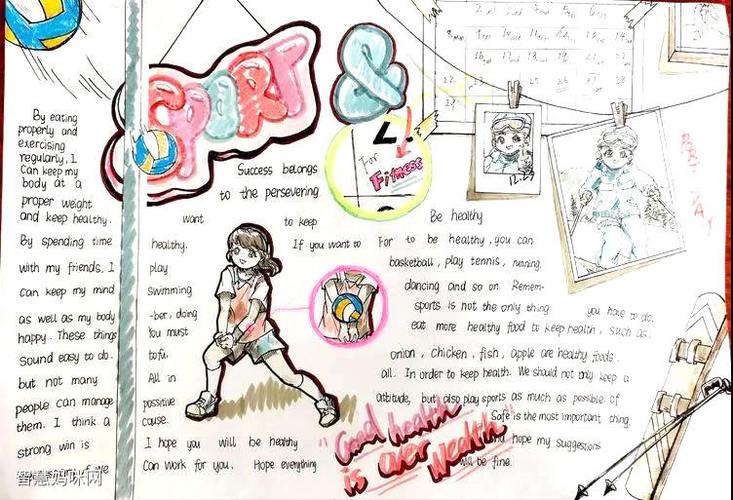 SPORT &
For
Fitness
12.25
By eating
properly and
exercising
regularly, I
Can keep my
body at a
proper weight
and keep healthy.
By spending time
with my friends, I
can keep my mind
as well as my body
happy. These things
sound easy to do.
but not many
people can manage
them. I think a
strong win is
Success belongs
to the persevering
Be healthy
want to keep
healthy. If you want to For to be healthy, you can
play basketball, play tennis, running,
swimming dancing and so on. Remem-
-ber, doing sports is not the only thing you have to do.
You must eat more healthy food to keep health, such as:
tofu, onion, chicken, fish, apple are healthy foods.
All in all. In order to keep health. We should not only keep a
possitive attitude, but also play sports as much as possible of
cause. Safe is the most important thing.
I hope you will be healthy and hope my suggestions
Can work for you. Hope everything will be fine.
"Good health
is over wealth"
智慧妈咪网